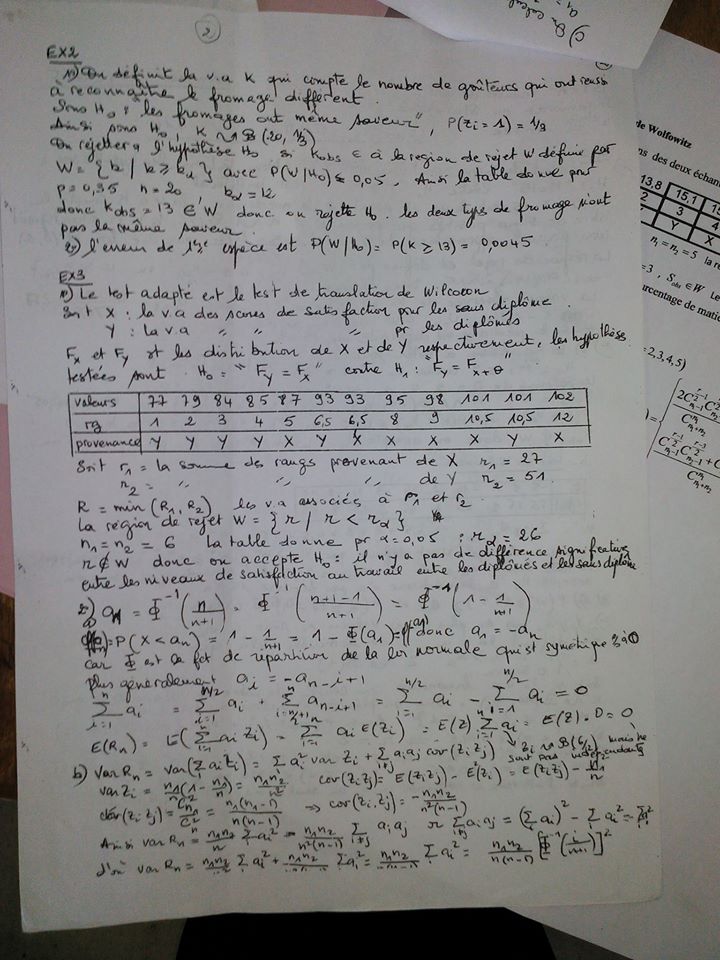 2
c) On calcul
a₁ =
EX2
1») On définit la v.a K qui compte le nombre de goûteurs qui ont reussi
à reconnaître le fromage différent.
Sous H₀ : "les fromages ont même saveur", P(Zi = 1) = 1/3
Ainsi sous H₀, K ↝ B(20, 1/3)
On rejettera l'hypothèse H₀ si kobs ∈ à la region de rejet W définie par
W = {k / k ⩾ kα} avec P(W/H₀) ⩽ 0,05. Ainsi la table donne pour
p = 0,35 n = 20, kα = 12
donc kobs = 13 ∈ W donc on rejette H₀. les deux types de fromage n'ont
pas la même saveur.
2») l'erreur de 1ère espèce est P(W/H₀) = P(K ⩾ 13) = 0,0045.
EX3
1») Le test adapté est le test de translation de Wilcoxon
Soit X : la v.a des scores de satisfaction pour les sans diplôme.
Y : la v.a " " pr les diplômés
Fx et Fy st les distribution de X et de Y respectivement, les hypothèses
testées sont H₀ = "Fy = Fx" contre H₁ : "Fy = F x+θ"
valeurs 77 79 84 85 87 93 93 95 98 101 101 102
rg 1 2 3 4 5 6,5 6,5 8 9 10,5 10,5 12
provenance Y Y Y Y X Y X X X X Y X
Soit r₁ = la somme des rangs provenant de X r₁ = 27
r₂ = " " de Y r₂ = 51.
R = min (R₁, R₂) les v.a associés à r₁ et r₂.
La région de rejet W = {r / r < rα}
n₁ = n₂ = 6 La table donne pr α = 0,05 : rα = 26
r ∉ W donc on accepte H₀ : il n'y a pas de différence significative
entre les niveaux de satisfaction au travail entre les diplômés et les sans diplôme
2») an = Φ⁻¹(n/(n+1)) = Φ⁻¹((n+1-1)/(n+1)) = Φ⁻¹(1 - 1/(n+1))
= P(X < an) = 1 - 1/(n+1) = 1 - Φ(a₁) donc a₁ = -an
car Φ est la fct de répartition de la loi normale qui st symétrique à 0
plus généralement ai = -an-i+1
Σ ai = Σ ai + Σ an-i+1 = Σ ai - Σ ai = 0
E(Rn) = E(Σ ai Zi) = Σ ai E(Zi) = E(Z) Σ ai = E(Z).0 = 0
b) Var Rn = var(Σ ai Zi) = Σ ai² var Zi + Σ ai aj cov(Zi Zj)
sont pas indépendants
var Zi = n₁/n (1 - n₁/n) = n₁n₂/n² cov(Zi Zj) = E(Zi Zj) - E²(Zi) = E(Zi Zj) - n₁²/n²
= n₁(n₁-1)/n(n-1) ⇒ cov(Zi, Zj) = - n₁n₂/n²(n-1)
Ainsi var Rn = n₁n₂/n² Σ ai² - n₁n₂/n²(n-1) Σ ai aj or Σ ai aj = (Σ ai)² - Σ ai² = -Σ ai²
d'où var Rn = n₁n₂/n² Σ ai² + n₁n₂ Σ ai² = n₁n₂/n(n-1) Σ ai² = n₁n₂/n(n-1) [Φ⁻¹(i/(n+1))]²
de Wolfowitz
ns des deux échan
13,8 15,1 14
2 3 4
Y X Y
n₁ = n₂ = 5 la ré
=3, Sobs ∈ W i.e
urcentage de matiè
=2,3,4,5)